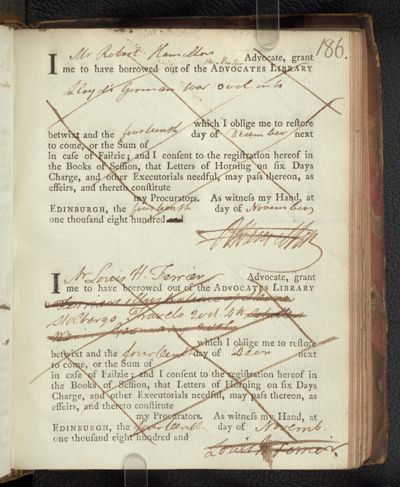 186.
I Mr Robert Hamilton Advocate, grant
me to have borrowed out of the ADVOCATES LIBRARY
Lloyd's German War 2 vol in 4to
which I oblige me to reſtore
betwixt and the fourteenth day of December next
to come, or the Sum of
in caſe of Failzie; and I conſent to the regiſtration hereof in
the Books of Seſſion, that Letters of Horning on ſix Days
Charge, and other Executorials needful, may paſs thereon, as
effeirs, and thereto conſtitute
my Procurators. As witneſs my Hand, at
EDINBURGH, the fourteenth day of November
one thouſand eight hundred and
I Mr Louis H. Ferrier Advocate, grant
me to have borrowed out of the ADVOCATES LIBRARY
Stolbergs Travels 2 vol 4to
which I oblige me to reſtore
betwixt and the fourteenth day of Decr next
to come, or the Sum of
in caſe of Failzie; and I conſent to the regiſtration hereof in
the Books of Seſſion, that Letters of Horning on ſix Days
Charge, and other Executorials needful, may paſs thereon, as
effeirs, and thereto conſtitute
my Procurators. As witneſs my Hand, at
EDINBURGH, the fourteenth day of Novemb.
one thouſand eight hundred and
Louis H Ferrier